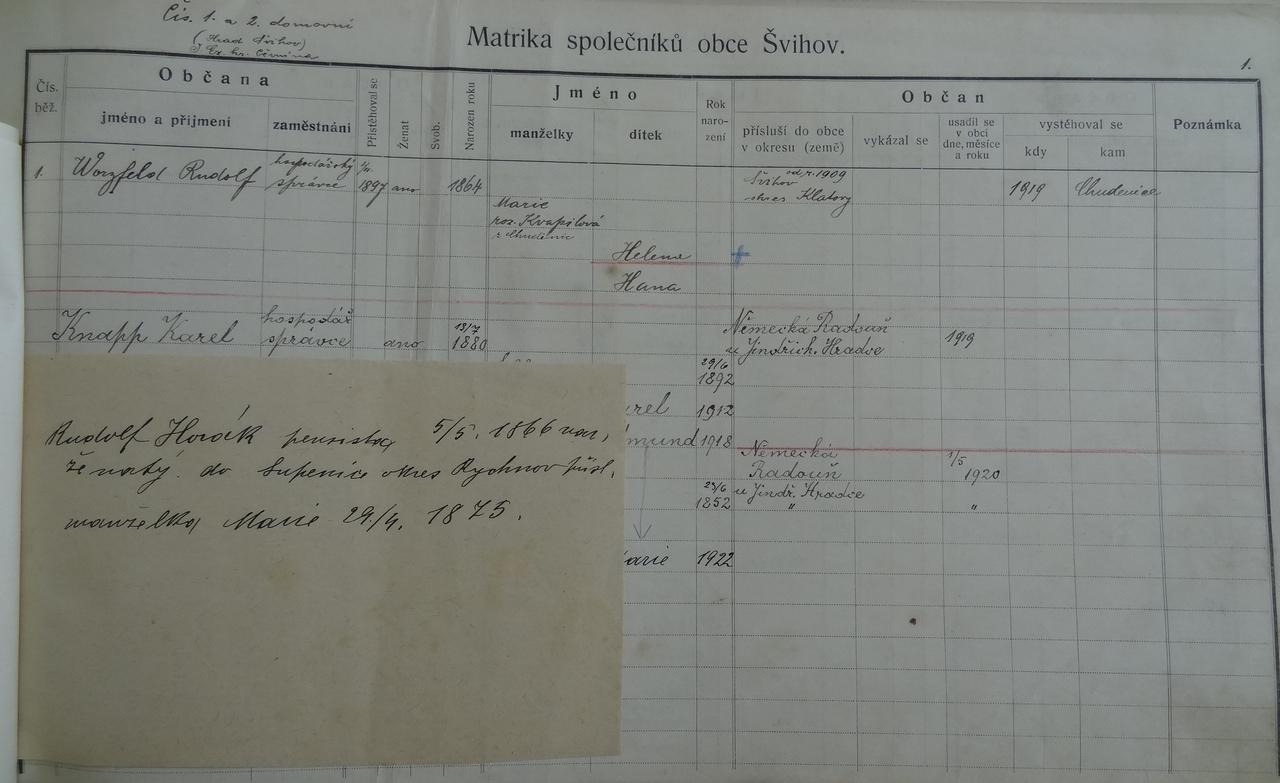 Čís. 1. a 2. domovní
(Hrad Švihov)
Matrika společníků obce Švihov.
1.
Čís. běž.
Občana
jméno a přijmení
zaměstnání
Přistěhoval se
Ženat
Svob.
Narozen roku
Jméno
manželky
dítek
Rok naro-zení
Občan
přísluší do obce v okresu (země)
vykázal se
usadil se v obci dne, měsíce a roku
vystěhoval se
kdy
kam
Poznámka
1. Rudolf hospodářský správce 1897 ano 1864 Švihov od r. 1909 okres Klatovy 1919 Chudenice
Marie
roz. Kvapilová
z Chudenic
Helena
Hana
Knapp Karel hospodář správce ano 13/7 1880 Německá Radouň u Jindřich. Hradce 1919
29/6 1892
arel 1912
mund 1918
Německá Radouň u Jindř. Hradce 1/5 1920
23/6 1852 " "
arie 1922
Rudolf Horák pensista, 5/5. 1866 nar.,
ženatý do okres Rychnov
manželka Marie 29/4. 1875.